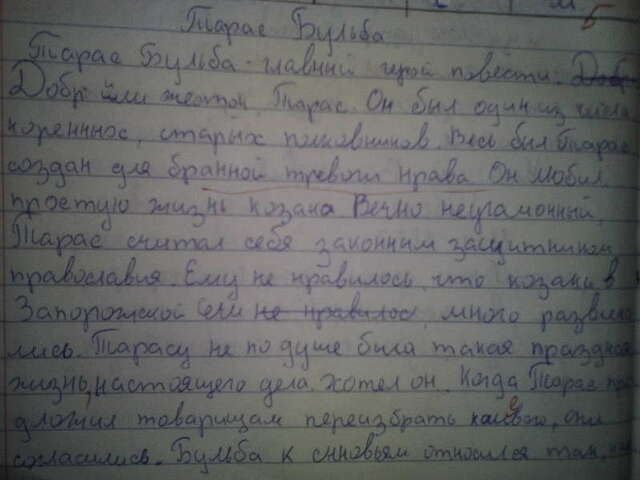 5
Тарас Бульба
Тарас Бульба - главный герой повести. Доб
Добр или жесток Тарас. Он был один из числа
кореннос, старых полковников. Весь был Тарас
создан для бранной тревоги нрава Он любил
простую жизнь козака Вечно неугомонный,
Тарас считал себя законным защитником
православия. Ему не нравилось, что козаки в
Запорожской сечи не нравилос, много развлека
лись. Тарасу не по душе была такая праздная
жизнь, настоящего дела хотел он. Когда Тарас пре
дложил товарищам переизбрать кошевого, они
согласились. Бульба к сыновьям относился так,